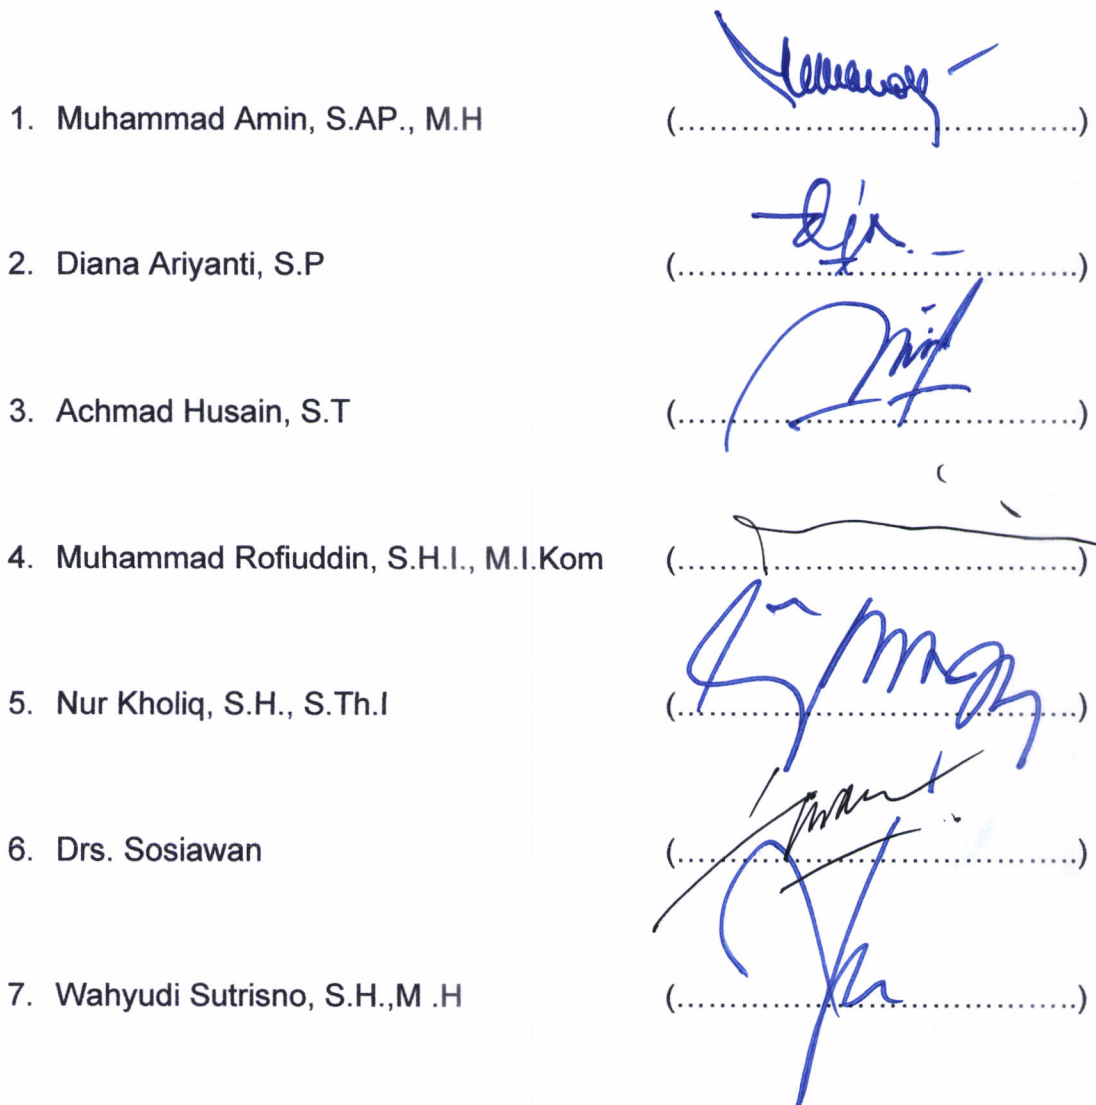 1. Muhammad Amin, S.AP., M.H (........................................)
2. Diana Ariyanti, S.P (........................................)
3. Achmad Husain, S.T (........................................)
4. Muhammad Rofiuddin, S.H.I., M.I.Kom (........................................)
5. Nur Kholiq, S.H., S.Th.I (........................................)
6. Drs. Sosiawan (........................................)
7. Wahyudi Sutrisno, S.H.,M .H (........................................)